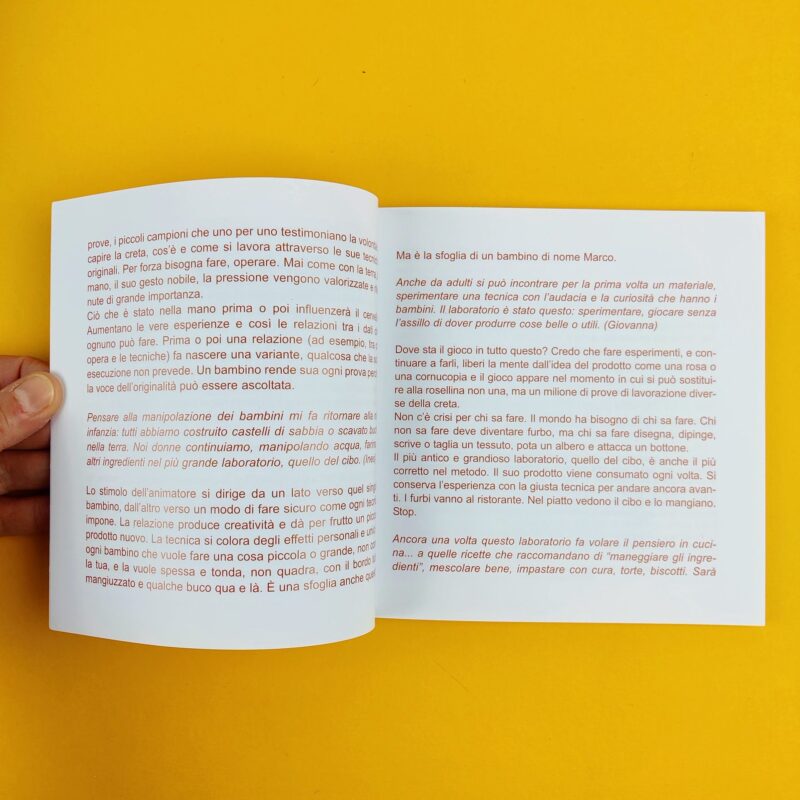 prove, i piccoli campioni che uno per uno testimoniano la volontà
capire la creta, cos'è e come si lavora attraverso le sue tecni
originali. Per forza bisogna fare, operare. Mai come con la terra,
mano, il suo gesto nobile, la pressione vengono valorizzate e
nute di grande importanza.
Ciò che è stato nella mano prima o poi influenzerà il
Aumentano le vere esperienze e così le relazioni tra i dati
ognuno può fare. Prima o poi una relazione (ad esempio, tra
opera e le tecniche) fa nascere una variante, qualcosa che la
esecuzione non prevede. Un bambino rende sua ogni prova
la voce dell'originalità può essere ascoltata.
Pensare alla manipolazione dei bambini mi fa ritornare alla
infanzia: tutti abbiamo costruito castelli di sabbia o scavato
nella terra. Noi donne continuiamo, manipolando acqua,
altri ingredienti nel più grande laboratorio, quello del cibo. (Ines)
Lo stimolo dell'animatore si dirige da un lato verso quel
bambino, dall'altro verso un modo di fare sicuro come ogni
impone. La relazione produce creatività e dà per frutto un
prodotto nuovo. La tecnica si colora degli effetti personali e
ogni bambino che vuole fare una cosa piccola o grande, non
la tua, e la vuole spessa e tonda, non quadra. con il bordo
mangiuzzato e qualche buco qua e là. È una sfoglia anche
Ma è la sfoglia di un bambino di nome Marco.
Anche da adulti si può incontrare per la prima volta un materiale,
sperimentare una tecnica con l'audacia e la curiosità che hanno i
bambini. Il laboratorio è stato questo: sperimentare, giocare senza
l'assillo di dover produrre cose belle o utili. (Giovanna)
Dove sta il gioco in tutto questo? Credo che fare esperimenti, e con-
tinuare a farli, liberi la mente dall'idea del prodotto come una rosa o
una cornucopia e il gioco appare nel momento in cui si può sostitui-
re alla rosellina non una, ma un milione di prove di lavorazione diver-
se della creta.
Non c'è crisi per chi sa fare. Il mondo ha bisogno di chi sa fare. Chi
non sa fare deve diventare furbo, ma chi sa fare disegna, dipinge,
scrive o taglia un tessuto, pota un albero e attacca un bottone.
Il più antico e grandioso laboratorio, quello del cibo, è anche il più
corretto nel metodo. Il suo prodotto viene consumato ogni volta. Si
conserva l'esperienza con la giusta tecnica per andare ancora avan-
ti. I furbi vanno al ristorante. Nel piatto vedono il cibo e lo mangiano.
Stop.
Ancora una volta questo laboratorio fa volare il pensiero in cuci-
na... a quelle ricette che raccomandano di "maneggiare gli ingre-
dienti", mescolare bene, impastare con cura, torte, biscotti. Sarà